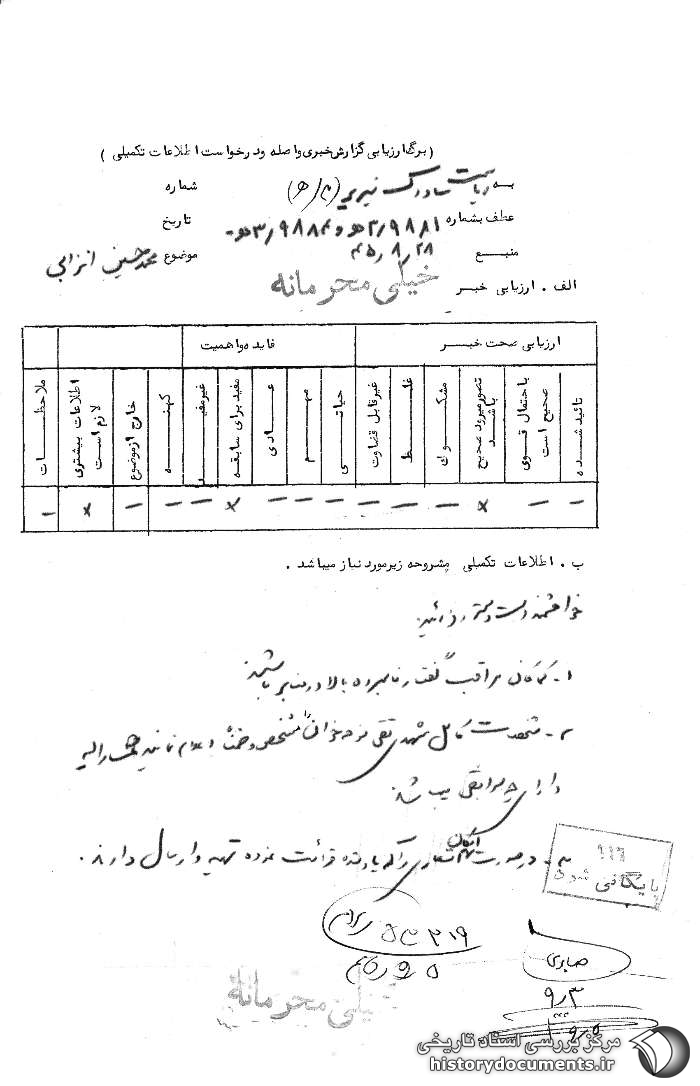 (برگ ارزیابی گزارش خبری واصله و درخواست اطلاعات تکمیلی)
به ریاست ساواک تبریز (ه/م) شماره
عطف بشماره ۳/۹۸۸۱ه و ۳/۹۸۸۴ه- تاریخ
منبع ۴۵/۸/۲۸ موضوع محمدحسین انزابی
الف . ارزیابی خبر خیلی محرمانه
ارزیابی صحت خبر فایده و اهمیت
تائید شده
باحتمال قوی صحیح است
تصور میرود صحیح باشد
مشکوک
غلط
غیرقابل قضاوت
حیاتی
مهم
عادی
مفید برای سابقه
غیرمفید
کهنه
خارج ازموضوع
اطلاعات بیشتری لازم است
ملاحظات
– – x – – – – – – x – – – x –
ب . اطلاعات تکمیلی مشروحه زیر مورد نیاز میباشد .
خواهشمند است دستور فرمائید
۱- کماکان مراقب گفتار نامبرده بالا در منابر باشند
۲- مشخصات کامل مشهدی تقی نوحه خوان را مشخص و ضمناً اعلام نمایند مشارالیه
دارای چه سوابقی میباشد
۳- در صورت امکان اشعاری را که یاد شده قرائت نموده تهیه و ارسال دارند .
۹۱۶
بایگانی شود
صابری
۹/۳
۹/۵
خیلی محرمانه
مرکز بررسی اسناد تاریخی
historydocuments.ir